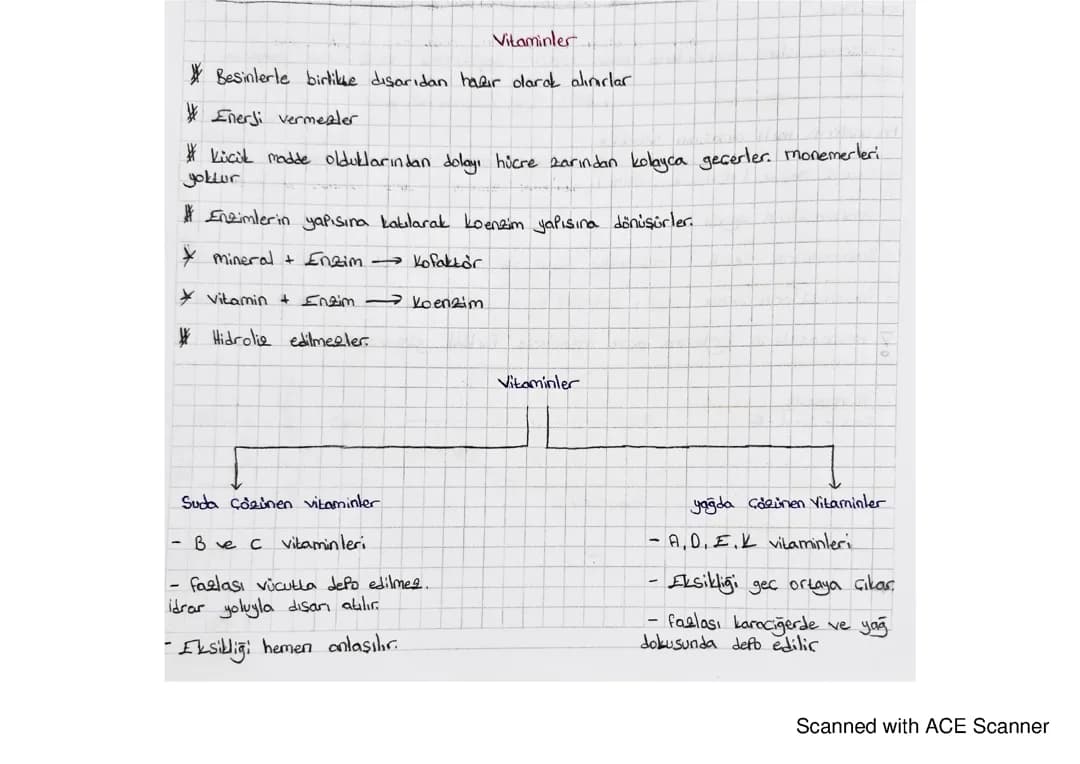 Vitaminler
* Besinlerle birlikte dışarıdan hazır olarak alınırlar
* Enerji vermezler
* Kücük madde olduklarından dolayı hücre zarından kolayca gecerler. monemerleri
yoktur
* Enzimlerin yapısına katılarak koenzim yapısına dönüşürler.
* mineral + Enzim → Kofaktör
* Vitamin + Enzim → Koenzim
* Hidroliz edilmezler.
Vitaminler
Suda Çözünen vitaminler
yağda Çözünen Vitaminler
- B ve C vitaminleri
- A, D, E, K vitaminleri
- fazlası vücutta depo edilmez.
idrar yoluyla dısarı atılır.
- Eksikliği hemen anlaşılır.
- Eksikliği gec ortaya Cıkar.
- fazlası karaciğerde ve yağ
dokusunda depo edilir
Scanned with ACE Scanner